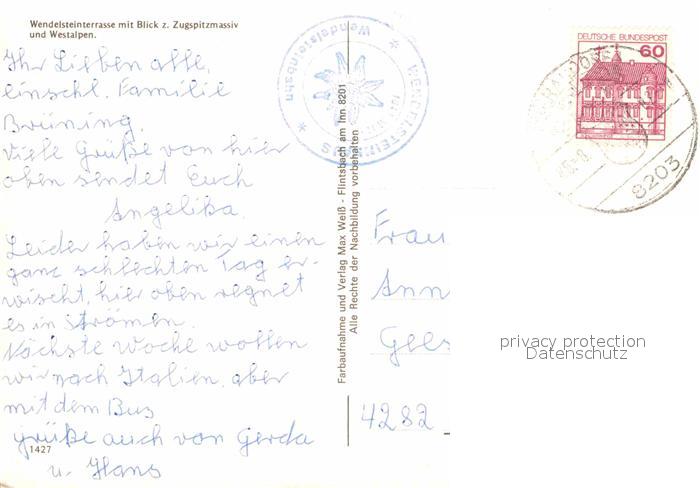 Wendelsteinterrasse mit Blick z. Zugspitzmassiv
und Westalpen.
Ihr Lieben alle,
einschl. Familie
Brüning,
viele Grüße von hier
oben sendet Euch
Angelika.
Leider haben wir einen
ganz schlechten Tag er-
wischt, hier oben regnet
es in Strömen.
Nächste Woche wollen
wir nach Italien, aber
mit dem Bus
grüße auch von Gerda
u. Hans
1427
Farbaufnahme und Verlag Max Weiß - Flintsbach am Inn 8201
Alle Rechte der Nachbildung vorbehalten
Wendelsteinbahn
DEUTSCHE BUNDESPOST
60
8203
Frau
Ann
Gees
4282
privacy protection
Datenschutz